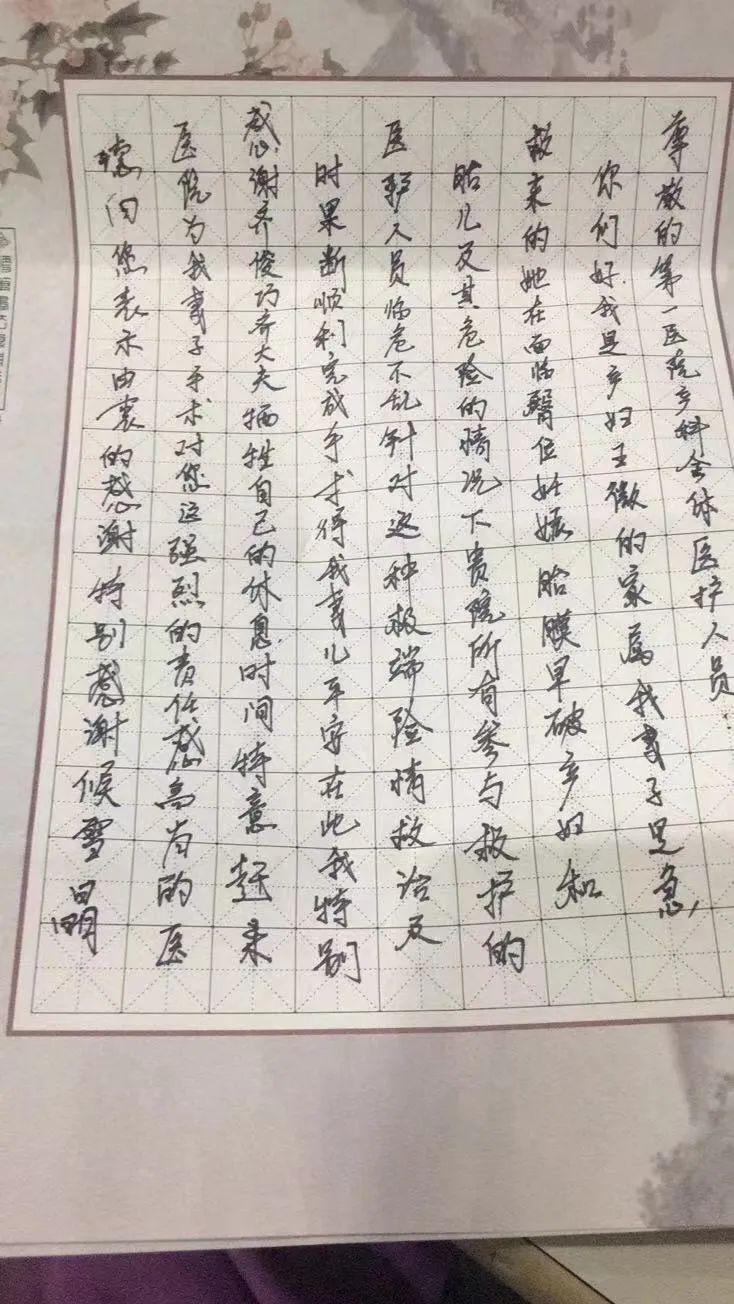 尊敬的第一医院产科全体医护人员:
你们好.我是产妇王微的家属我妻子是急
救来的她在面临臀位妊娠胎膜早破产妇和
胎儿及其危险的情况下贵院所有参与救护的
医护人员临危不乱针对这种极端险情救治及
时果断顺利完成手术得我妻儿平安在此我特别
感谢齐俊巧齐大夫牺牲自己的休息时间特意赶来
医院为我妻子手术对您这强烈的责任感高尚的医
德向您表示由衷的感谢特别感谢候雪晶